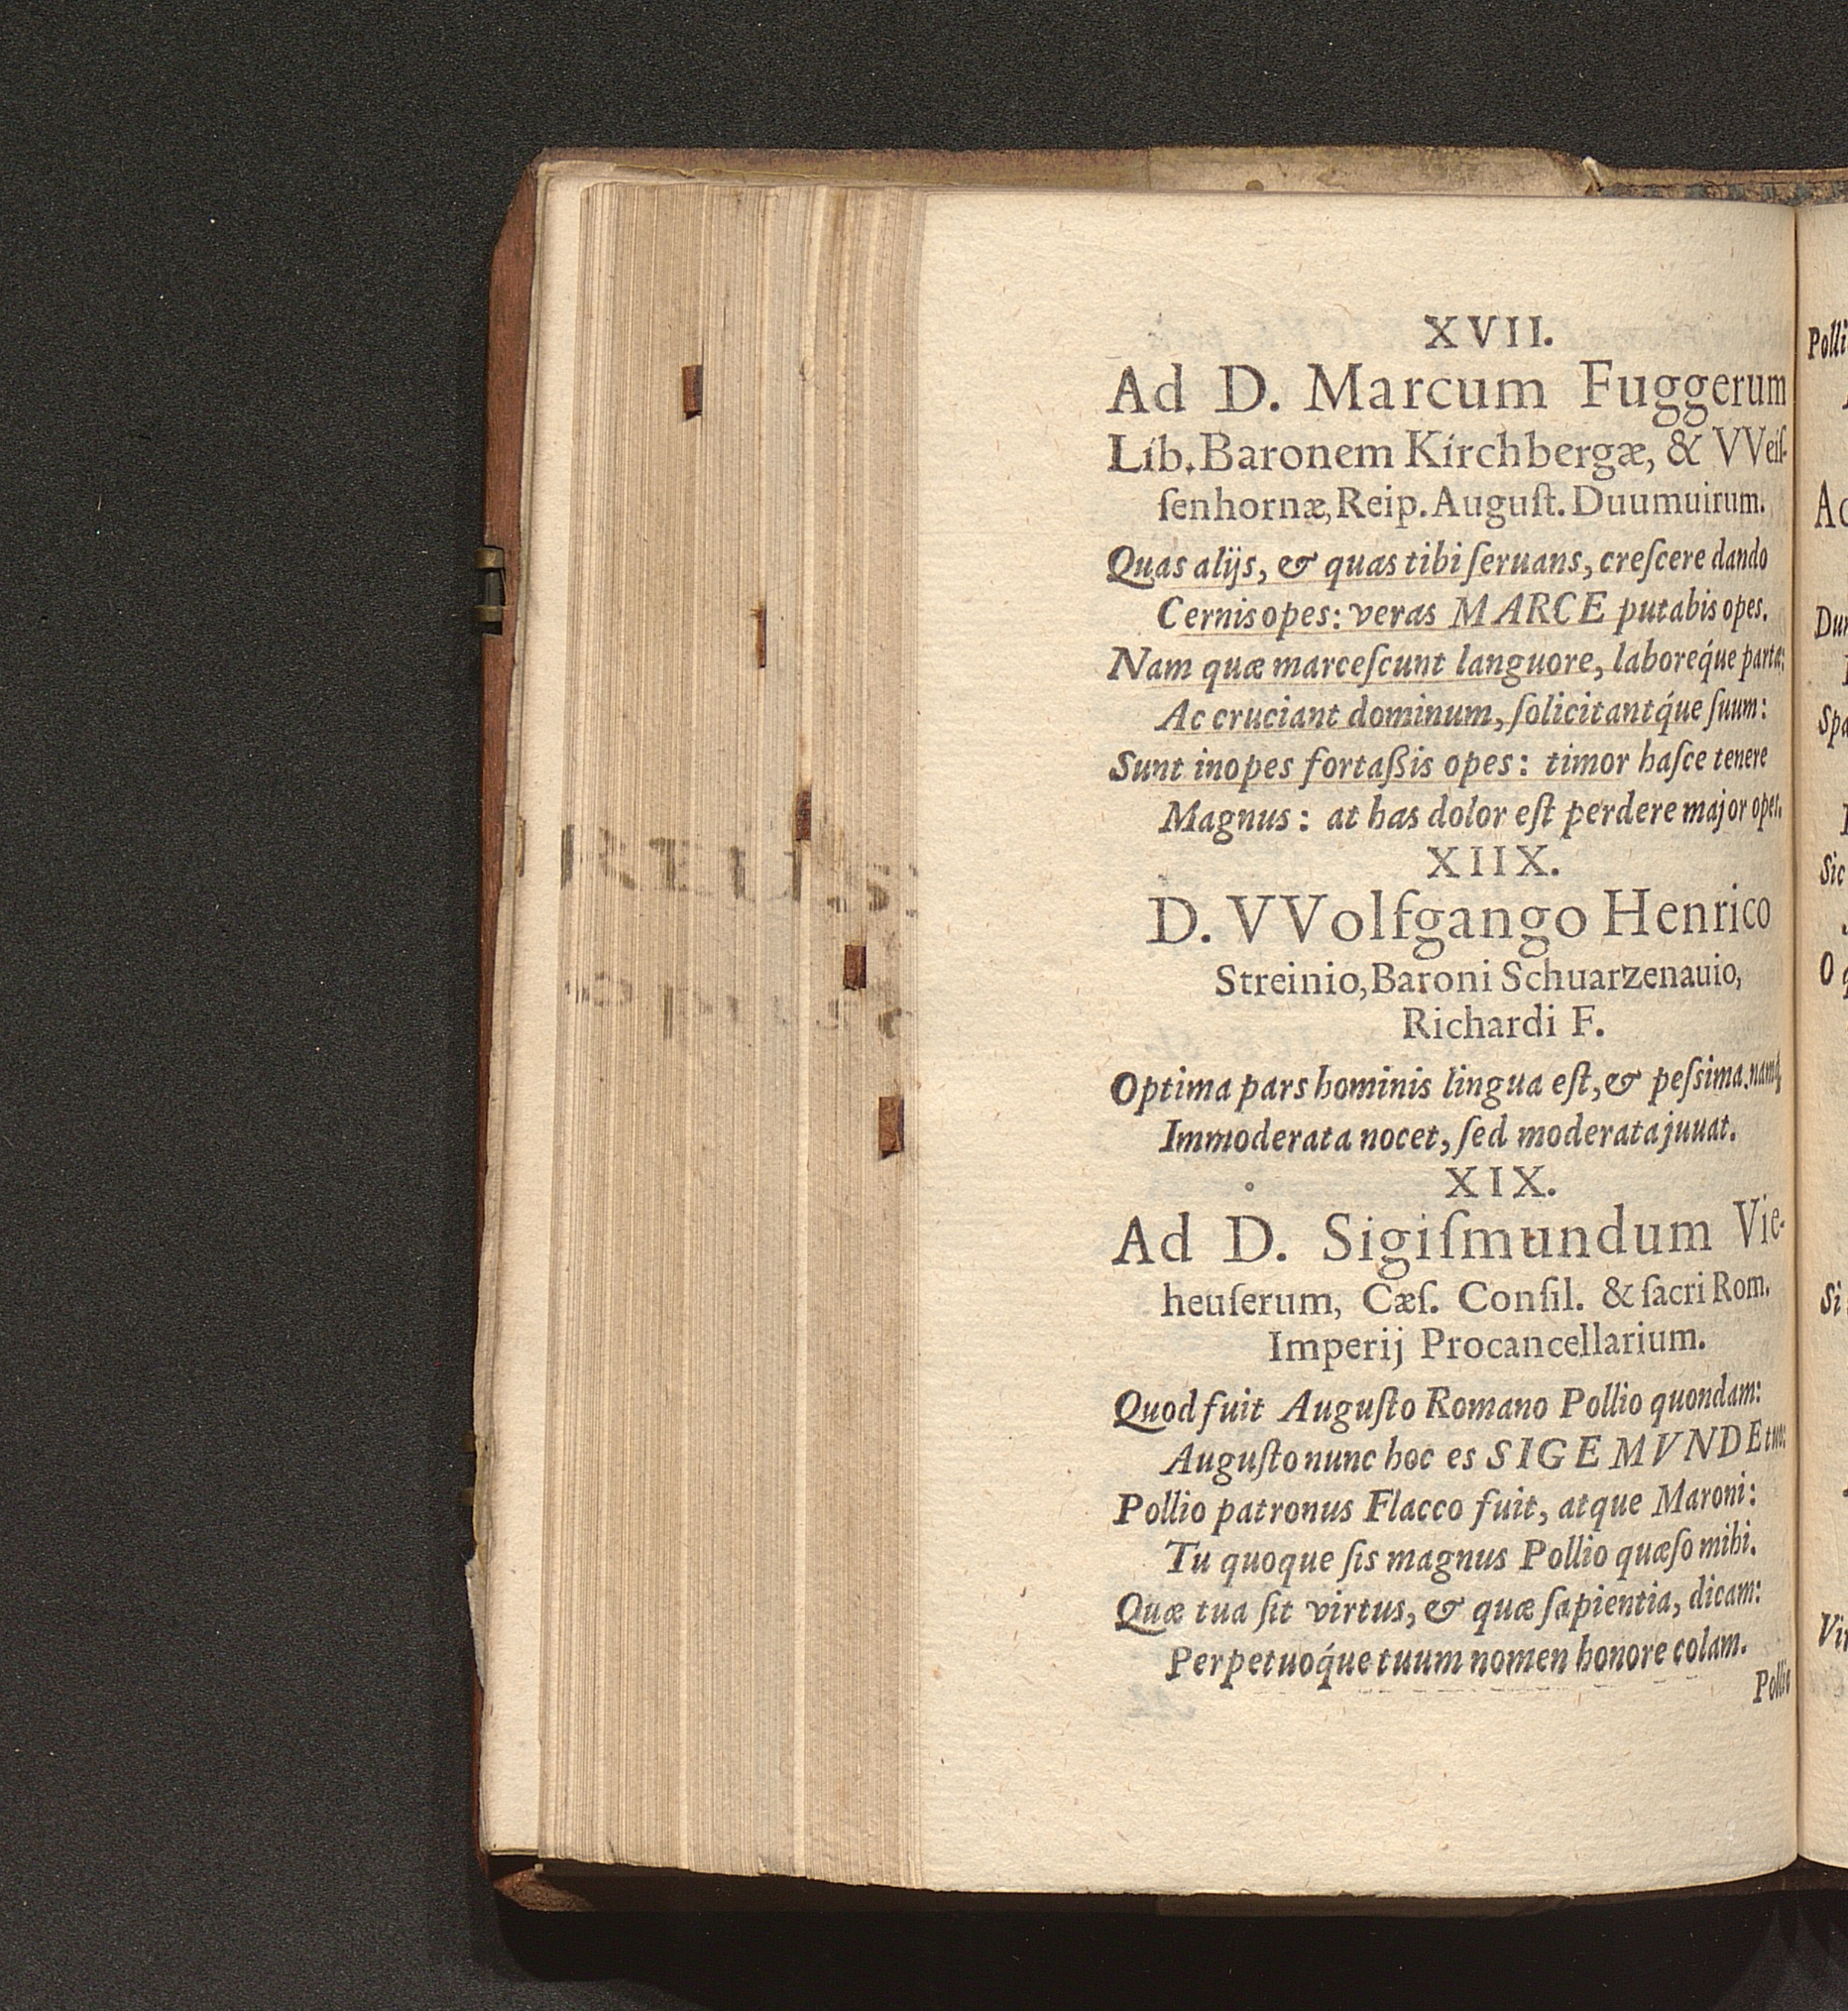 XVII.
Ad D. Marcum Fuggerum
Lib. Baronem Kirchbergæ, & VVeiſ-
ſenhornæ, Reip. Auguſt. Duumuirum.
Quas alijs, & quas tibi ſeruans, creſcere dando
Cernis opes: veras MARCE putabis opes.
Nam quæ marceſcunt languore, laboreq́ue parta:
Ac cruciant dominum, ſolicitantq́ue ſuum:
Sunt inopes fortaßis opes: timor haſce tenere
Magnus: at has dolor eſt perdere major opes.
XIIX.
D. VVolfgango Henrico
Streinio, Baroni Schuartzenauio,
Richardi F.
Optima pars hominis lingua eſt, & peſsima. namq́
Immoderata nocet, ſed moderata juuat.
XIX.
Ad D. Sigiſmundum Vie-
heuſerum, Cæſ. Conſil. & ſacri Rom.
Imperij Procancellarium.
Quod fuit Auguſto Romano Pollio quondam:
Auguſto nunc hoc es SIGEMVNDE tuo:
Pollio patronus Flacco fuit, atque Maroni:
Tu quoque ſis magnus Pollio quæſo mihi.
Quæ tua ſit virtus, & quæ ſapientia, dicam:
Perpetuoq́ue tuum nomen honore colam.
Pollio
Polli
Ad
Dum
Spa
Sic
O q
Si
Vir